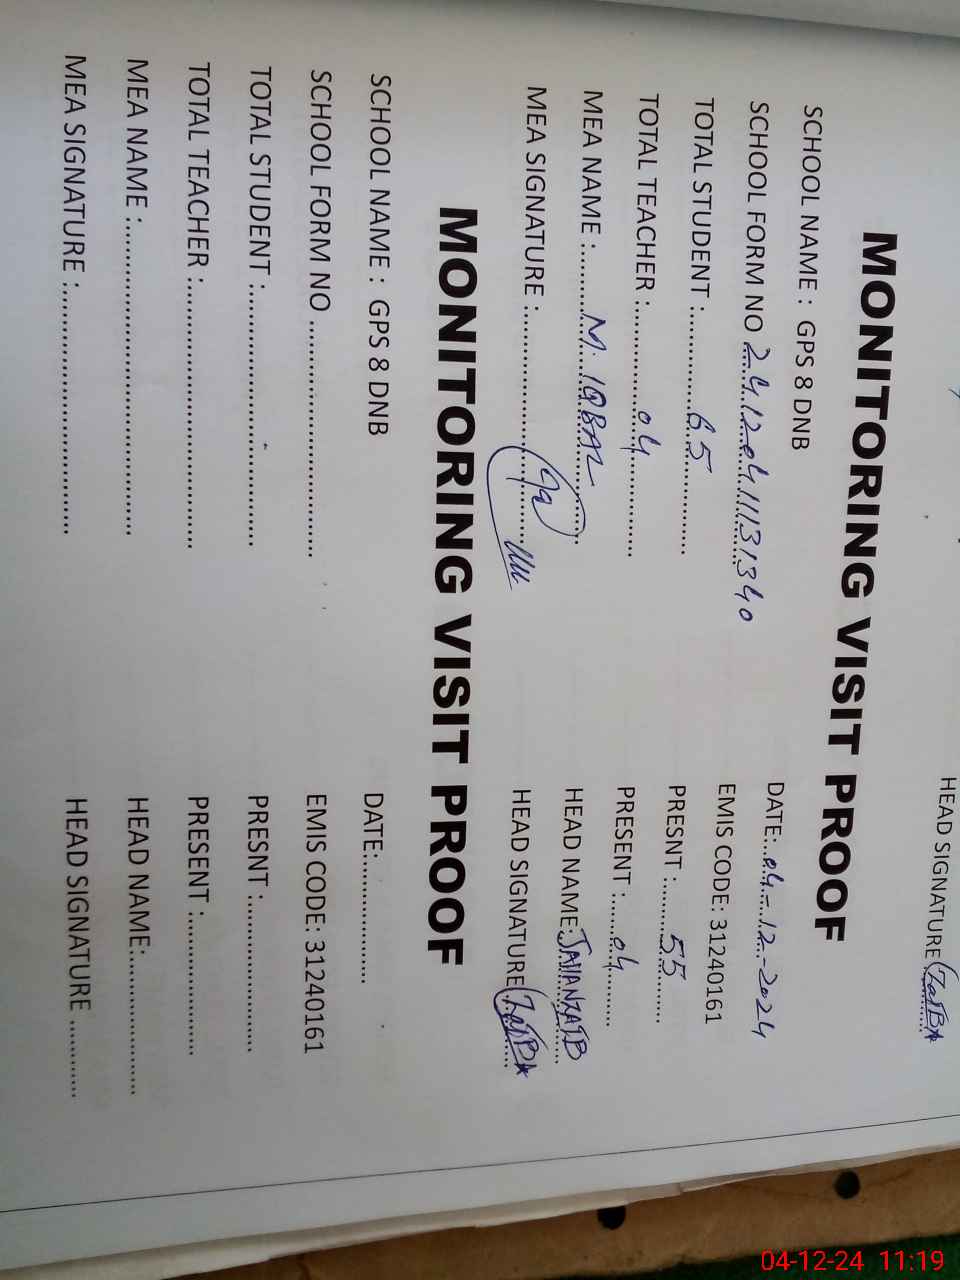 HEAD SIGNATURE
MONITORING VISIT PROOF
SCHOOL NAME : GPS 8 DNB
DATE: 04-12-2024
SCHOOL FORM NO 24120411131340
EMIS CODE: 31240161
TOTAL STUDENT : 65
PRESNT : 55
TOTAL TEACHER : 04
PRESENT : 04
MEA NAME : M. IQBAL
HEAD NAME:
MEA SIGNATURE :
HEAD SIGNATURE
MONITORING VISIT PROOF
SCHOOL NAME : GPS 8 DNB
DATE:
SCHOOL FORM NO
EMIS CODE: 31240161
TOTAL STUDENT :
PRESNT :
TOTAL TEACHER :
PRESENT :
MEA NAME :
HEAD NAME:
MEA SIGNATURE :
HEAD SIGNATURE
04-12-24 11:19